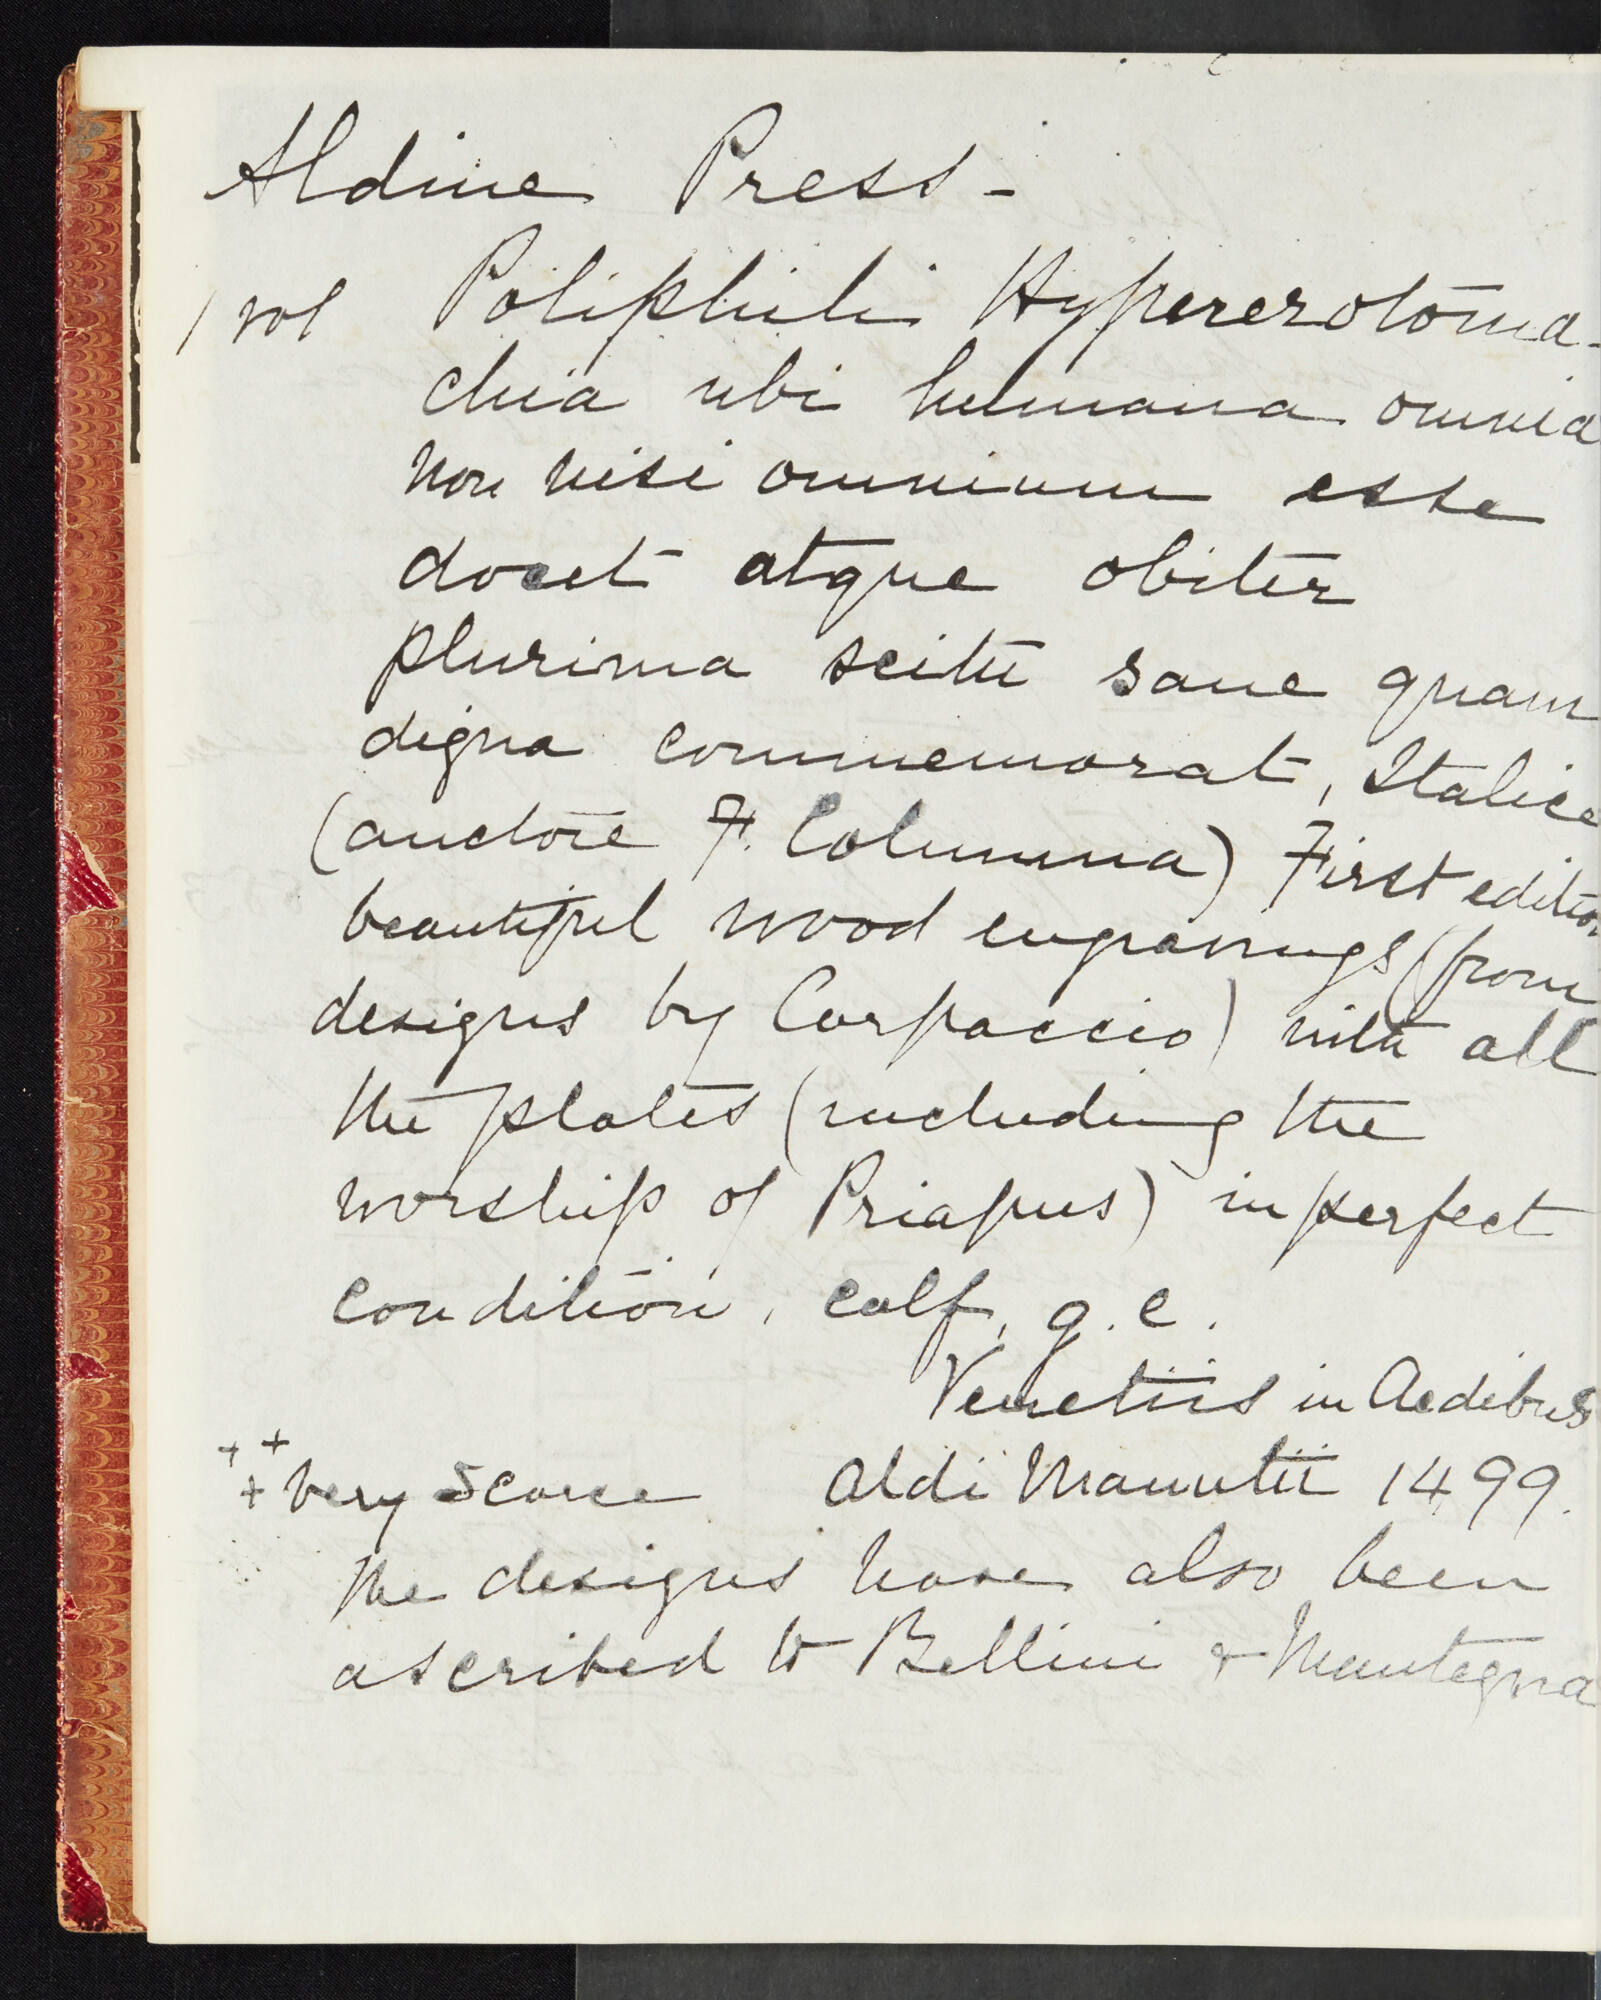 Aldine Press -
1 vol Poliphili Hypererotoma-
chia ubi humana omnia
non nisi omnium esse
docet atque obiter
plurima scitu sane quam
digna commemorat, Italice
(auctore F. Columna) First edition
beautiful wood engravings (from
designs by Carpaccio) with all
the plates (including the
worship of Priapus) in perfect
condition, calf, g. e.
Venetiis in Aedibus
+++ Very Scarce Aldi Manutii 1499.
The designs have also been
ascribed to Bellini & Mantegna